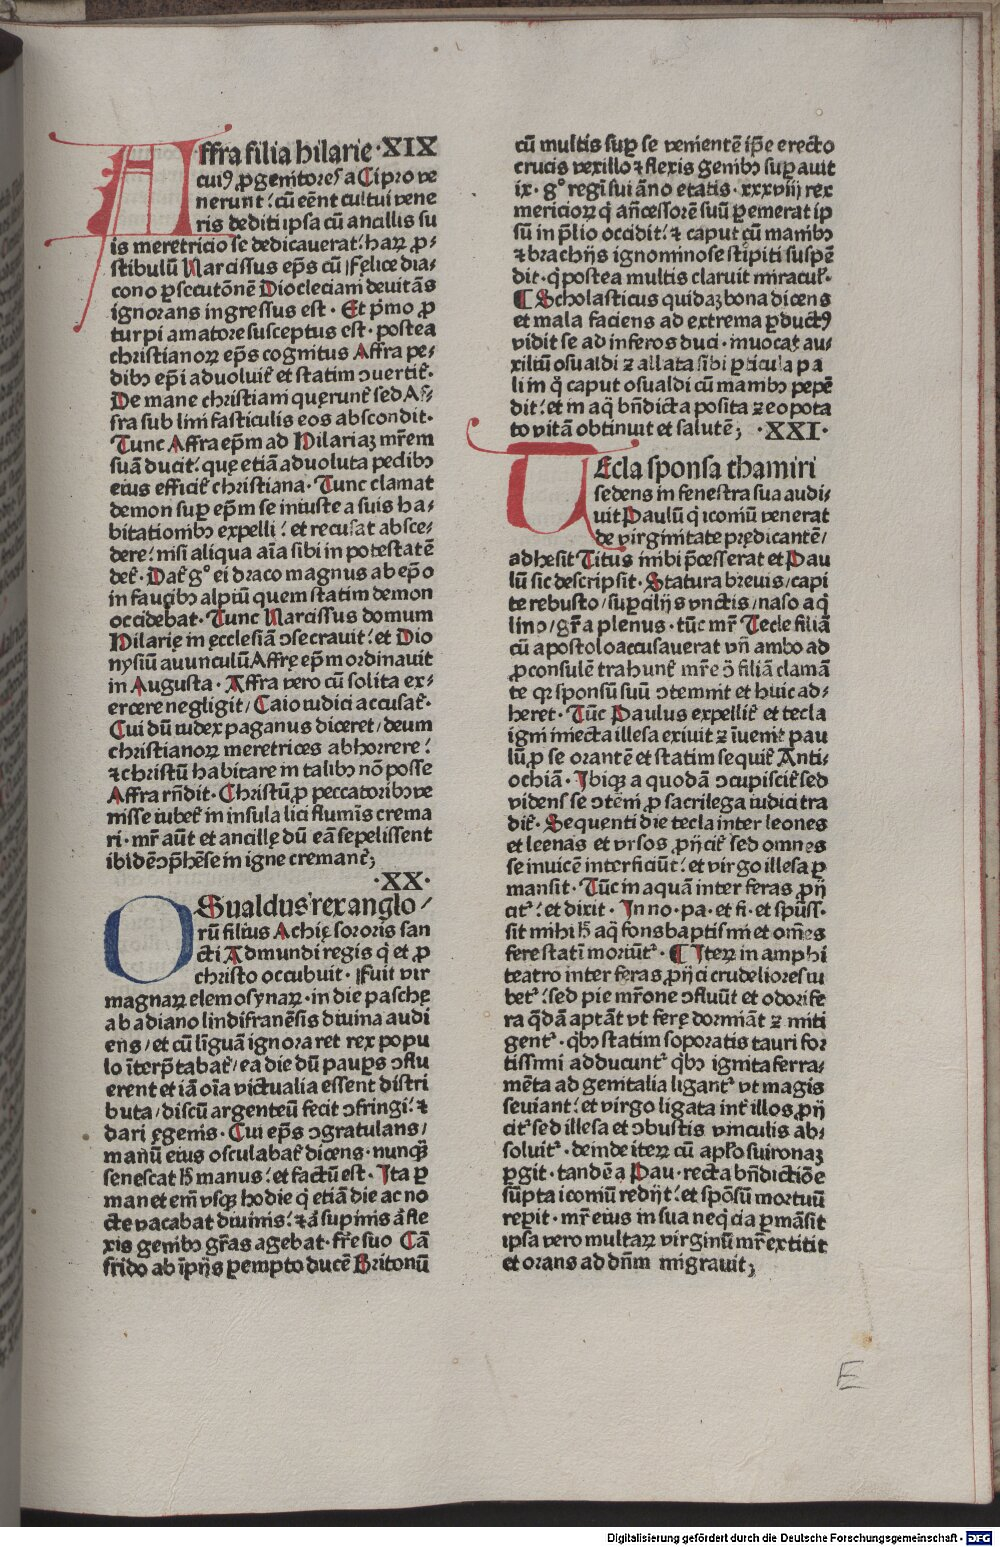 Affra filia hilarie ·XIX
cuiꝰ ꝓgenitores a Cipro ve
nerunt: cū eēnt cultui vene
ris dediti ipsa cū ancillis su
is meretricio se dedicauerat: haꝝ ꝓ-
stibulū Narcissus ep̄s cū Felice dia-
cono ꝑsecutōnē Diocleciani deuitās
ignorans ingressus est· Et pͥmo ꝓ
turpi amatore susceptus est· postea
christianoꝝ ep̄s cognitus Affra pe-
dibꝫ ep̄i aduoluit̄ et statim ꝯuertit̄·
De mane christiani quęrunt̄ sed Af-
fra sub lini fasticulis eos abscondit·
Tunc Affra ep̄m ad Hilariaꝫ mr̄em
suā ducit: quę etiā aduoluta pedibꝫ
eius efficit̄ christiana· Tunc clamat
demon suꝑ ep̄m se iniuste a suis ha-
bitationibꝫ expelli: et recusat absce-
dere: nisi aliqua aīa sibi in potestatē
det̄· Dat̄ gͦ ei draco magnus ab ep̄o
in faucibꝫ alpiū quem statim demon
occidebat· Tunc Narcissus domum
Hilarię in ęcclesiā ꝯsecrauit: et Dio
nysiū auunculū Affrę ep̄m ordinauit
in Augusta· Affra vero cū solita ex-
ercere negligit/ Caio iudici accusat̄·
Cui dū iudex paganus diceret/ deum
christianoꝝ meretrices abhorrere:
⁊ christū habitare in talibꝫ nō posse
Affra rn̄dit· Christū ꝓ peccatoribꝫ ve
nisse iubet̄ in insula lici flumīs crema
ri· mr̄ aūt et ancillę dū eā sepelissent
ibidē ꝯp̄hēse in igne cremant̄;
·XX·
OSualdus rex anglo/
rū filius Achię sororis san
cti Admundi regis q̄ et ꝓ
christo occubuit· Fuit vir
magnaꝝ elemosynaꝝ· in die paschę
ab adiano lindifranēsis diuina audi
ens/ et cū līguā ignoraret rex popu
lo īterp̄tabat̄/ ea die dū pauꝑs ꝯflu
erent et iā oīa victualia essent distri
buta/ discū argenteū fecit ꝯfringi: ⁊
dari ęgenis· Cui ep̄s ꝯgratulans/
manū eius osculabat̄ dicens· nunqᷓꝫ
senescat h̄ manus: et factū est· Ita ꝑ
manet em̄ vsqꝫ hodie q̄ etiā die ac no
cte vacabat diuinis: ⁊ ā supinis ā fle
xis genibꝫ gr̄as agebat· fr̄e suo Cā
frido ab īpijs ꝑempto ducē Britonū
cū multis suꝑ se venientē ip̄e erecto
crucis vexillo ⁊ flexis genibꝫ suꝑauit
ix· gͦ regī sui āno etatis· xxxviij rex
mericioꝝ q̄ an̄cessorē suū ꝑemerat ip
sū in p̄lio occidit: ⁊ caput cū manibꝫ
⁊ brachijs ignominose stipiti suspē
dit· q̄ postea multis claruit miracul̄·
¶ Scholasticus quidaꝫ bona dicens
et mala faciens ad extrema ꝑductꝰ
vidit se ad inferos duci· inuocat̄ au-
xiliū osualdi ⁊ allata sibi ꝑticula pa
li in q̄ caput osualdi cū manibꝫ pepē
dit: et in aq̄ bn̄dicta posita ⁊ eo pota
to vitā obtinuit et salutē; ·XXI·
TEcla sponsa thamiri
sedens in fenestra sua audi-
uit Paulū q̄ iconiū venerat
de virginitate prędicantē/
adhesit Titus inibi p̄cesserat et Pau
lū sic descripsit· Statura breuis/ capi
te rebusto/ suꝑcilijs vnctis/ naso aq̄
lino/ gr̄a plenus· tūc mr̄ Tecle filiā
cū apostolo accusauerat vn̄ ambo ad
ꝓconsulē trahunt̄ mr̄e ꝯ̄ filiā clamā
te qꝛ sponsū suū ꝯtemnit et huic ad-
heret· Tūc Paulus expellit̄ et tecla
igni iniecta illesa exiuit ⁊ īuenit̄ pau
lū ꝓ se orantē et statim sequit̄ Anti-
ochiā· Ibiqꝫ a quodā ꝯcupiscit̄ sed
videns se ꝯtēni ꝓ sacrilega iudici tra
dit̄· Sequenti die tecla inter leones
et leenas et vrsos ꝓijcit̄ sed omnes
se inuicē interficiūt: et virgo illesa ꝑ
mansit· Tūc in aquā inter feras ꝓij
cit̄: et dixit· In no· pa· et fi· et spūss·
sit mihi h̄ aq̄ fons baptismi et om̄es
fere statī moriūt̄· ¶ Iteꝝ in amphi
teatro inter feras ꝓijci crudeliores iu
bet̄: sed pie mr̄one ꝯfluūt et odorife
ra q̄dā aptāt vt ferę dormiāt ⁊ miti
gent̄· qͥbꝫ statim soporatis tauri for
tissimi adducunt̄ qͥbꝫ ignita ferra-
mēta ad genitalia ligant̄ vt magis
seuiant: et virgo ligata int̄ illos ꝓij
cit̄ sed illesa et ꝯbustis vinculis ab-
soluit̄· deinde iteꝝ cū apl̄o sui ronaꝫ
ꝑgit· tandē a Pau· recta bn̄dictiōe
sūpta iconiū redijt: et spōsū mortuū
reꝑit· mr̄ eius in sua neqͥcia ꝑmāsit
ipsa vero multaꝝ virginū mr̄ extitit
et orans ad dn̄m migrauit;
E
Digitalisierung gefördert durch die Deutsche Forschungsgemeinschaft - DFG